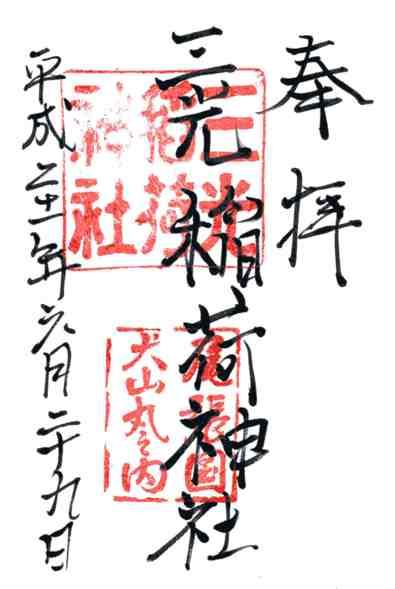 奉拝
三光稲荷神社
平成二十一年六月二十九日
三光
稲荷
神社
尾張国
犬山丸之内